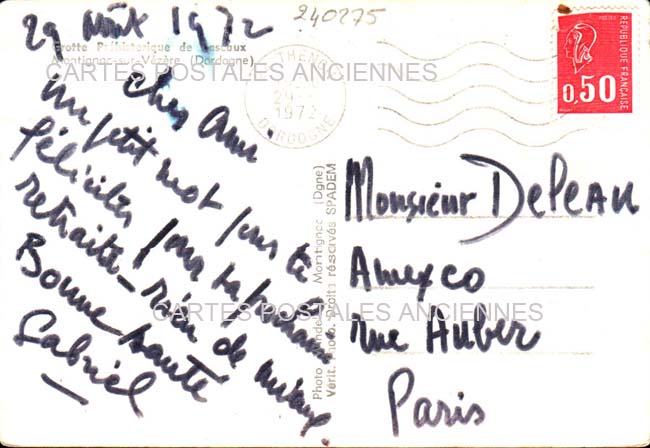 29 Août 1972
240275
Grotte Préhistorique de Lascaux
Montignac-sur-Vézère (Dordogne)
CARTES POSTALES ANCIENNES
Cher Ami
un petit mot pour te
féliciter pour ta prochaine
retraite - rien de mieux
Bonne santé
Gabriel
THENON
29
1972
DORDOGNE
POSTES
REPUBLIQUE FRANÇAISE
0,50
Monsieur DePeau
Amexco
rue Auber
Paris
CARTES POSTALES ANCIENNES
Montignac (Dgne)
Vérit. Photo. Droits réservés SPADEM